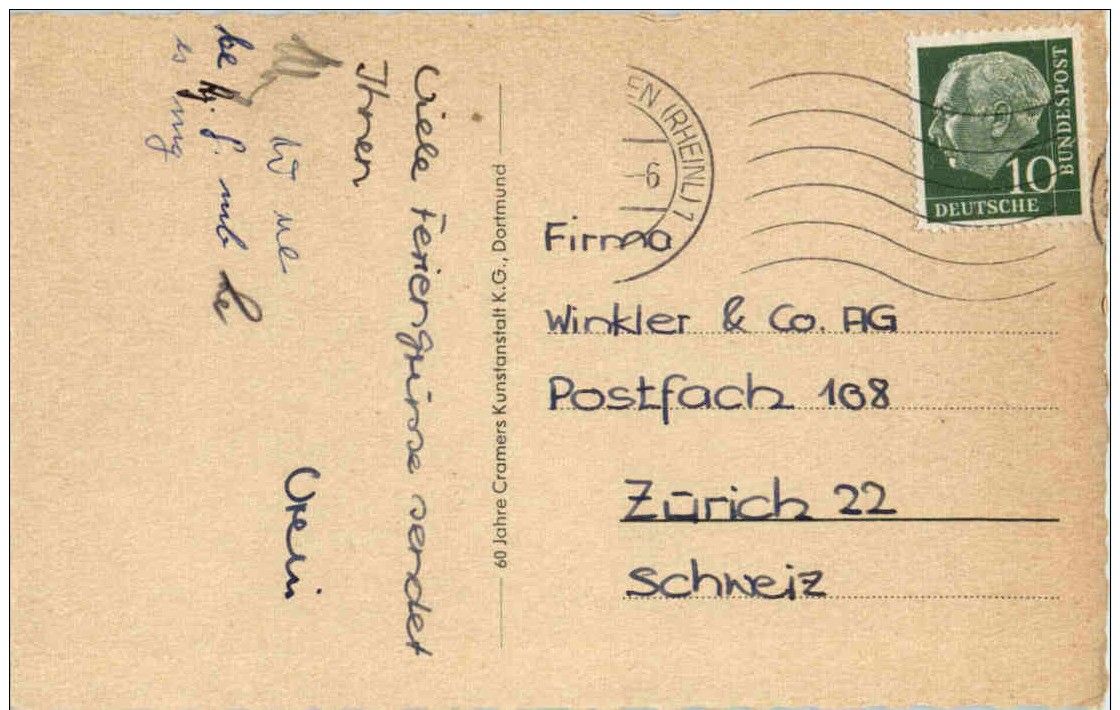 Viele Feriengrüsse sendet
Ihnen
60 Jahre Cramers Kunstanstalt K.G., Dortmund
EN (RHEINL) 1
-6
10
DEUTSCHE
BUNDESPOST
Firma
Winkler & Co. AG
Postfach 108
Zürich 22
Schweiz